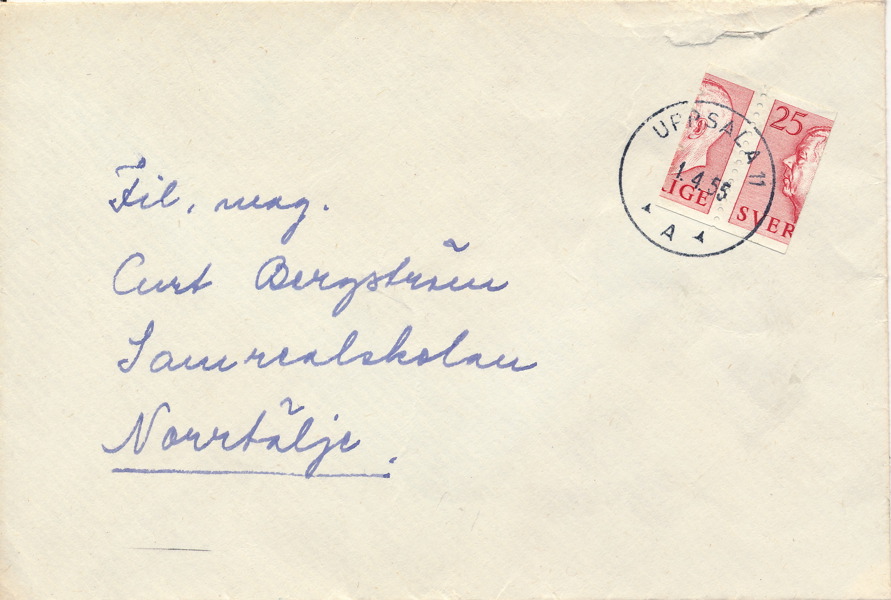 UPPSALA 11
1.4.55
A
25
IGE
SVER
Fil. mag.
Curt Bergström
Samrealskolan
Norrtälje.